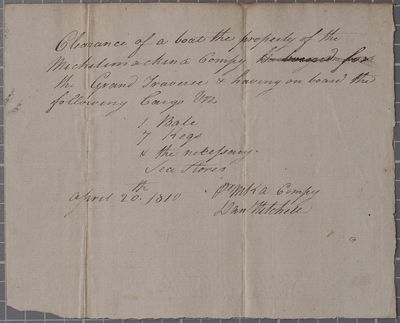 Clearance of a boat the property of the
Michilimackina Compy for
the Grand Traverse & having on board the
following Cargo Viz
1 Bale
7 Kegs
& the necessary
Sea Stores
April 20th 1810
Compy
Dan Mitchell